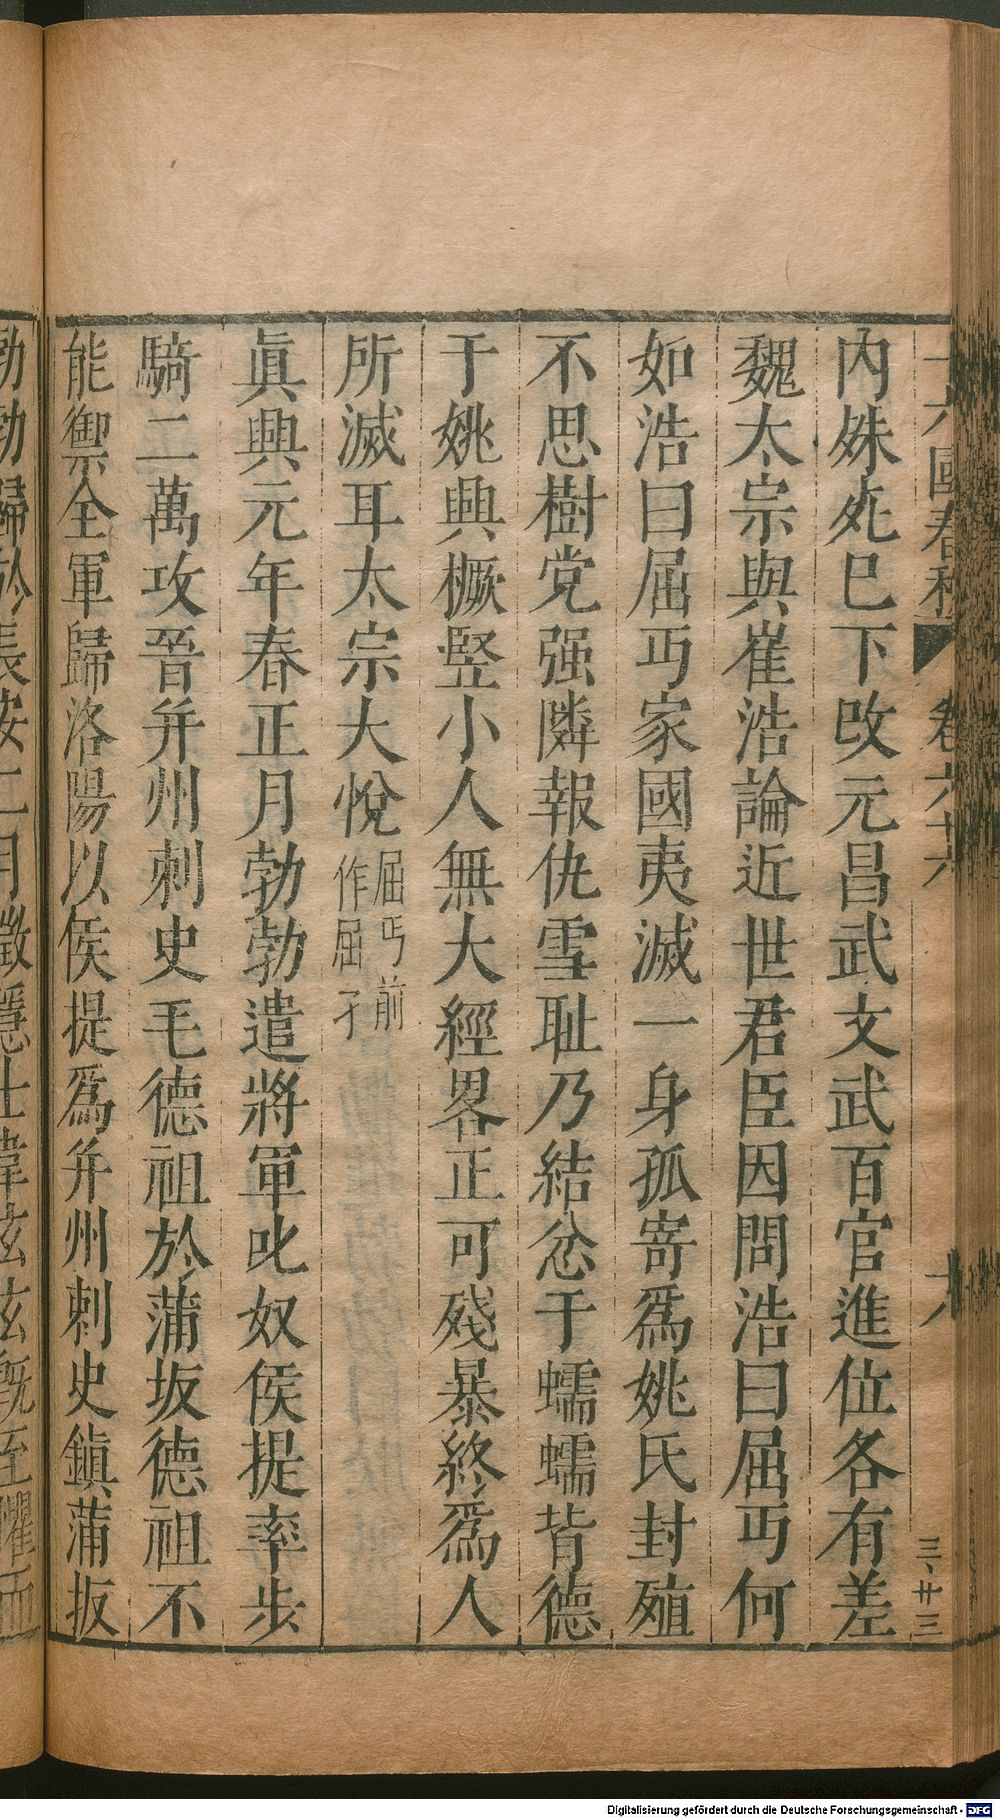 十六國春秋 卷六十六 十八 三、廿三
內殊死已下改元昌武文武百官進位各有差
魏太宗與崔浩論近世君臣因問浩曰屈丐何
如浩曰屈丐家國夷滅一身孤寄爲姚氏封殖
不思樹党强隣報仇雪恥乃結忿于蠕蠕背德
于姚興橛竪小人無大經畧正可殘暴終爲人
所滅耳太宗大悅屈丐前作屈孑
眞興元年春正月勃勃遣將軍叱奴侯提率步
騎二萬攻晉并州刺史毛德祖於蒲坂德祖不
能禦全軍歸洛陽以侯提爲并州刺史鎭蒲坂
勃勃歸於長安二月徵隱士韋玄玄旣至懼而
Digitalisierung gefördert durch die Deutsche Forschungsgemeinschaft - DFG